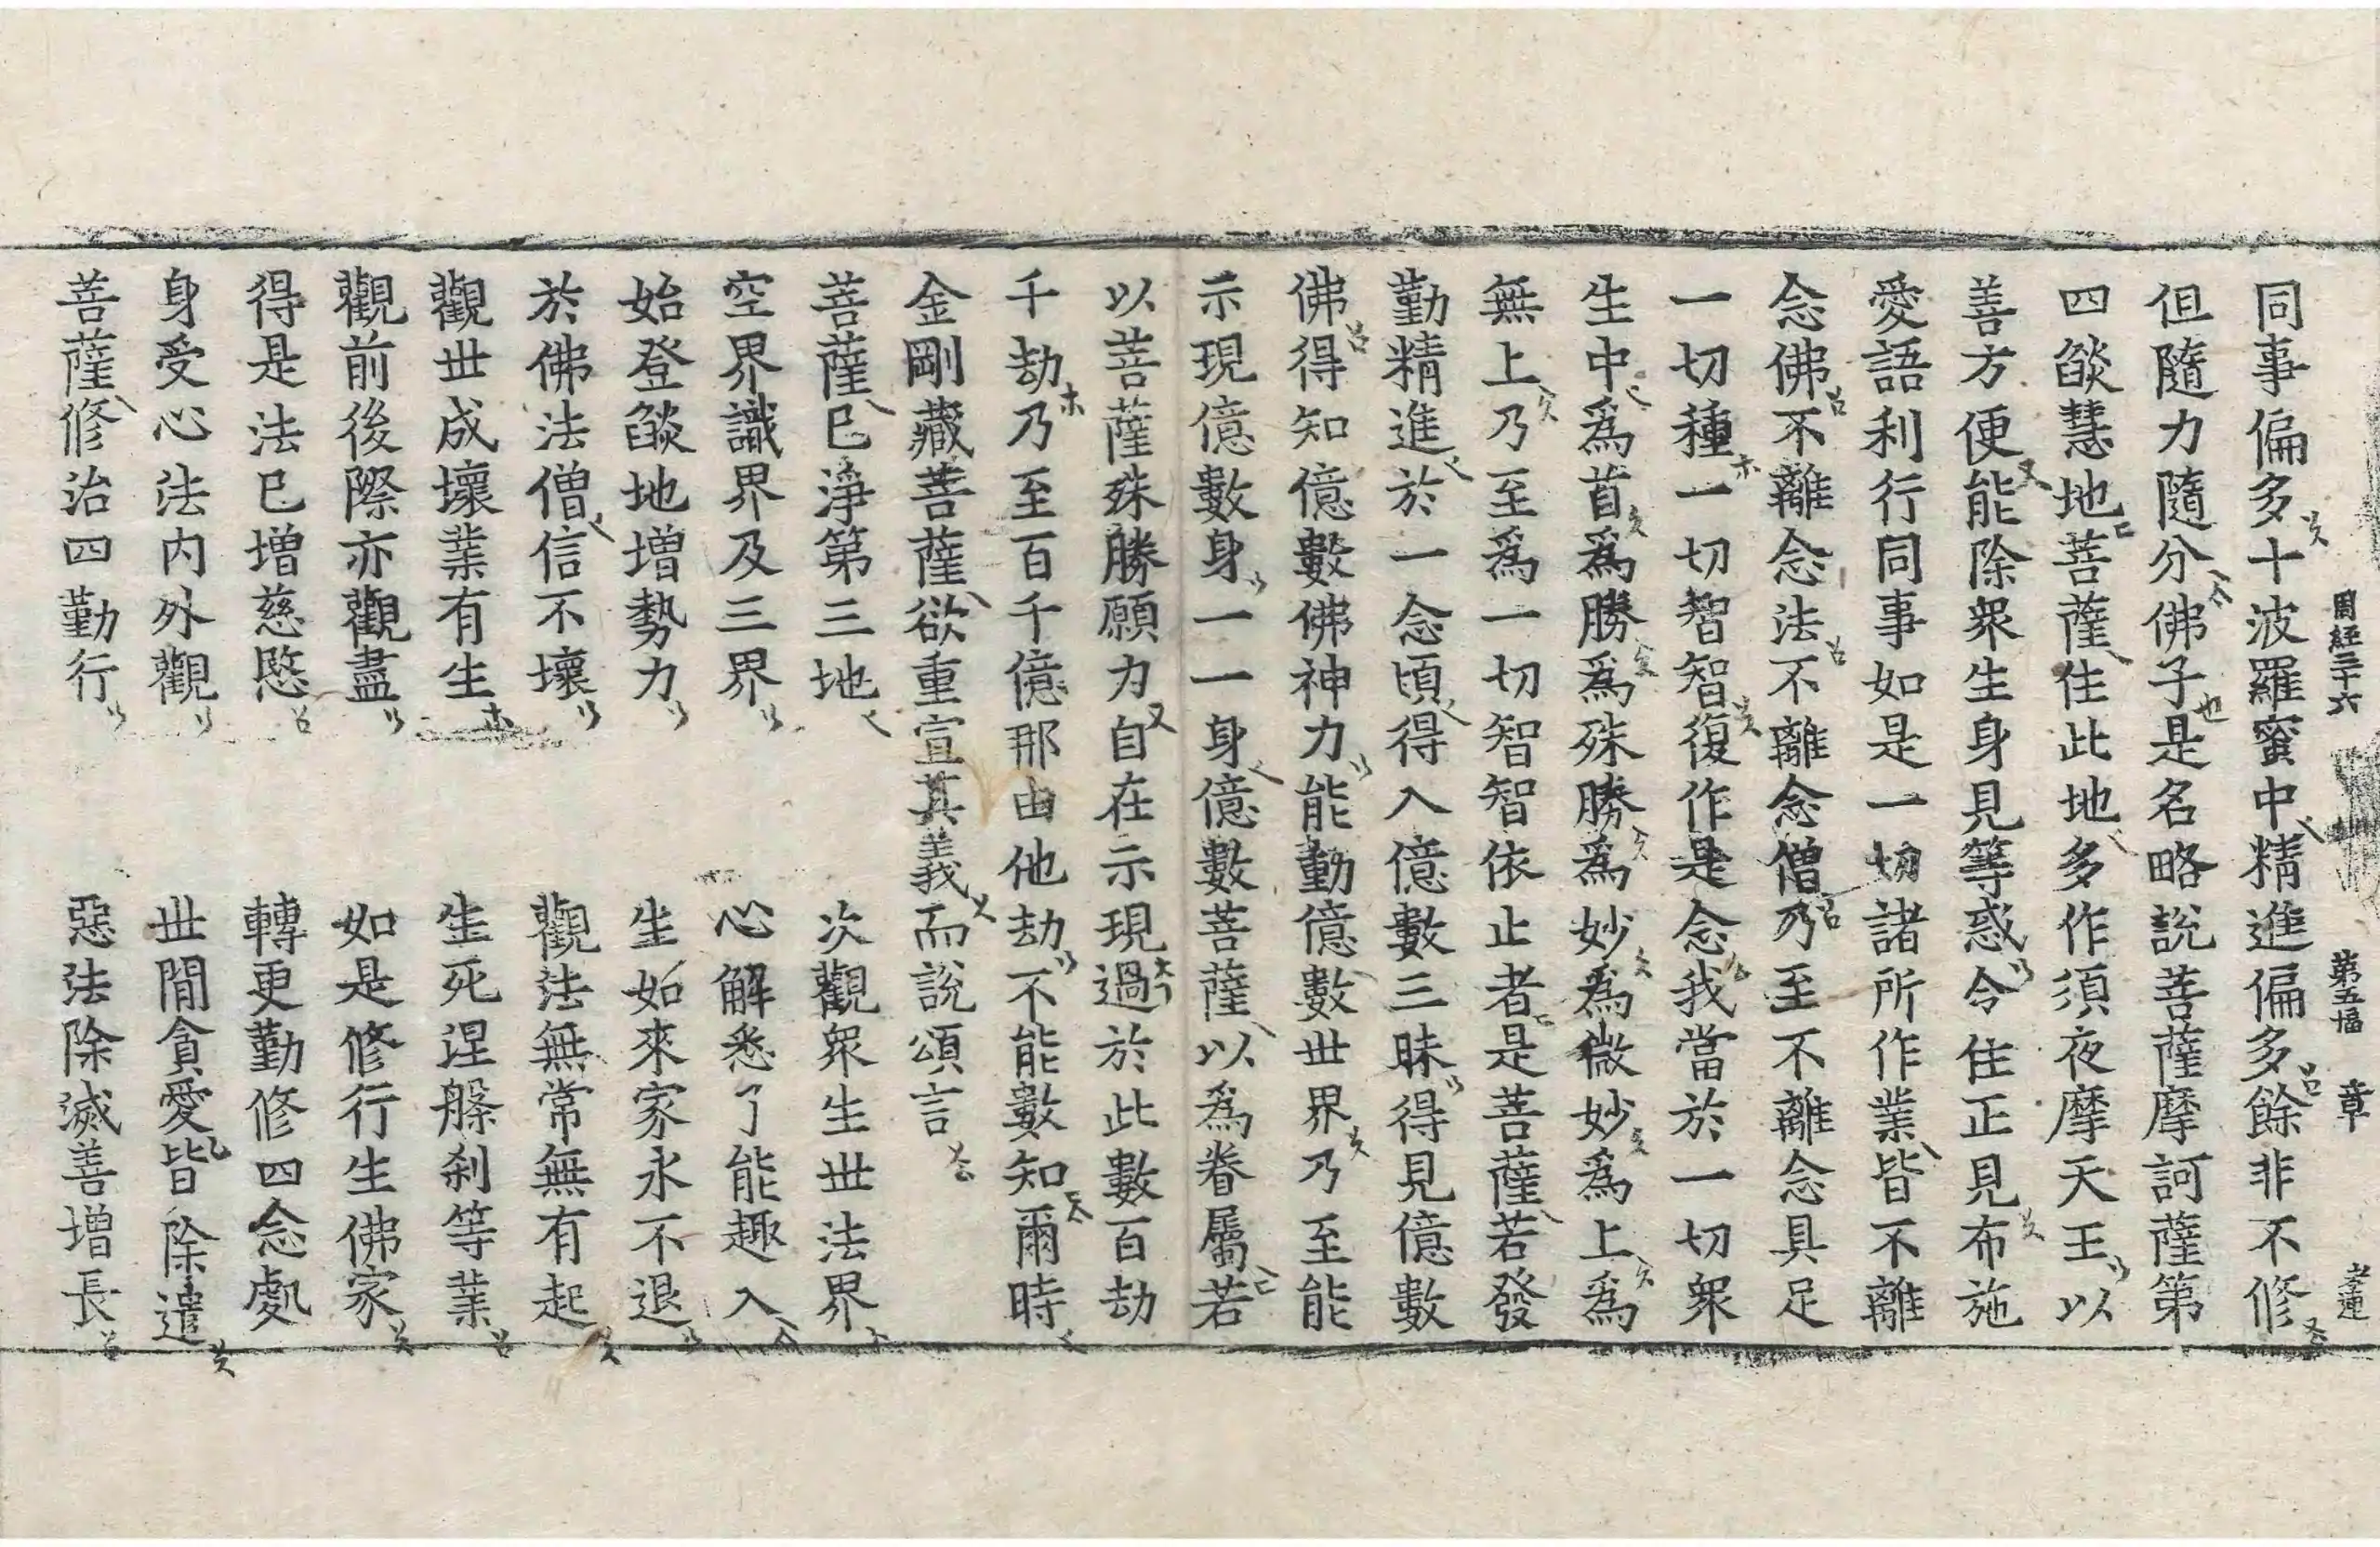 周經三十六 第五幅 章
同事偏多十波羅蜜中精進偏多餘非不修
但隨力隨分佛子是名略說菩薩摩訶薩第
四燄慧地菩薩住此地多作須夜摩天王以
善方便能除眾生身見等惑令住正見布施
愛語利行同事如是一切諸所作業皆不離
念佛不離念法不離念僧乃至不離念具足
一切種一切智智復作是念我當於一切眾
生中為首為勝為殊勝為妙為微妙為上為
無上乃至為一切智智依止者是菩薩若發
勤精進於一念頃得入億數三昧得見億數
佛得知億數佛神力能動億數世界乃至能
示現億數身一一身億數菩薩以為眷屬若
以菩薩殊勝願力自在示現過於此數百劫
千劫乃至百千億那由他劫不能數知爾時
金剛藏菩薩欲重宣其義而說頌言
菩薩已淨第三地 次觀眾生世法界
空界識界及三界 心解悉了能趣入
始登燄地增勢力 生如來家永不退
於佛法僧信不壞 觀法無常無有起
觀世成壞業有生 生死涅槃剎等業
觀前後際亦觀盡 如是修行生佛家
得是法已增慈愍 轉更勤修四念處
身受心法內外觀 世間貪愛皆除遣
菩薩修治四勤行 惡法除滅善增長